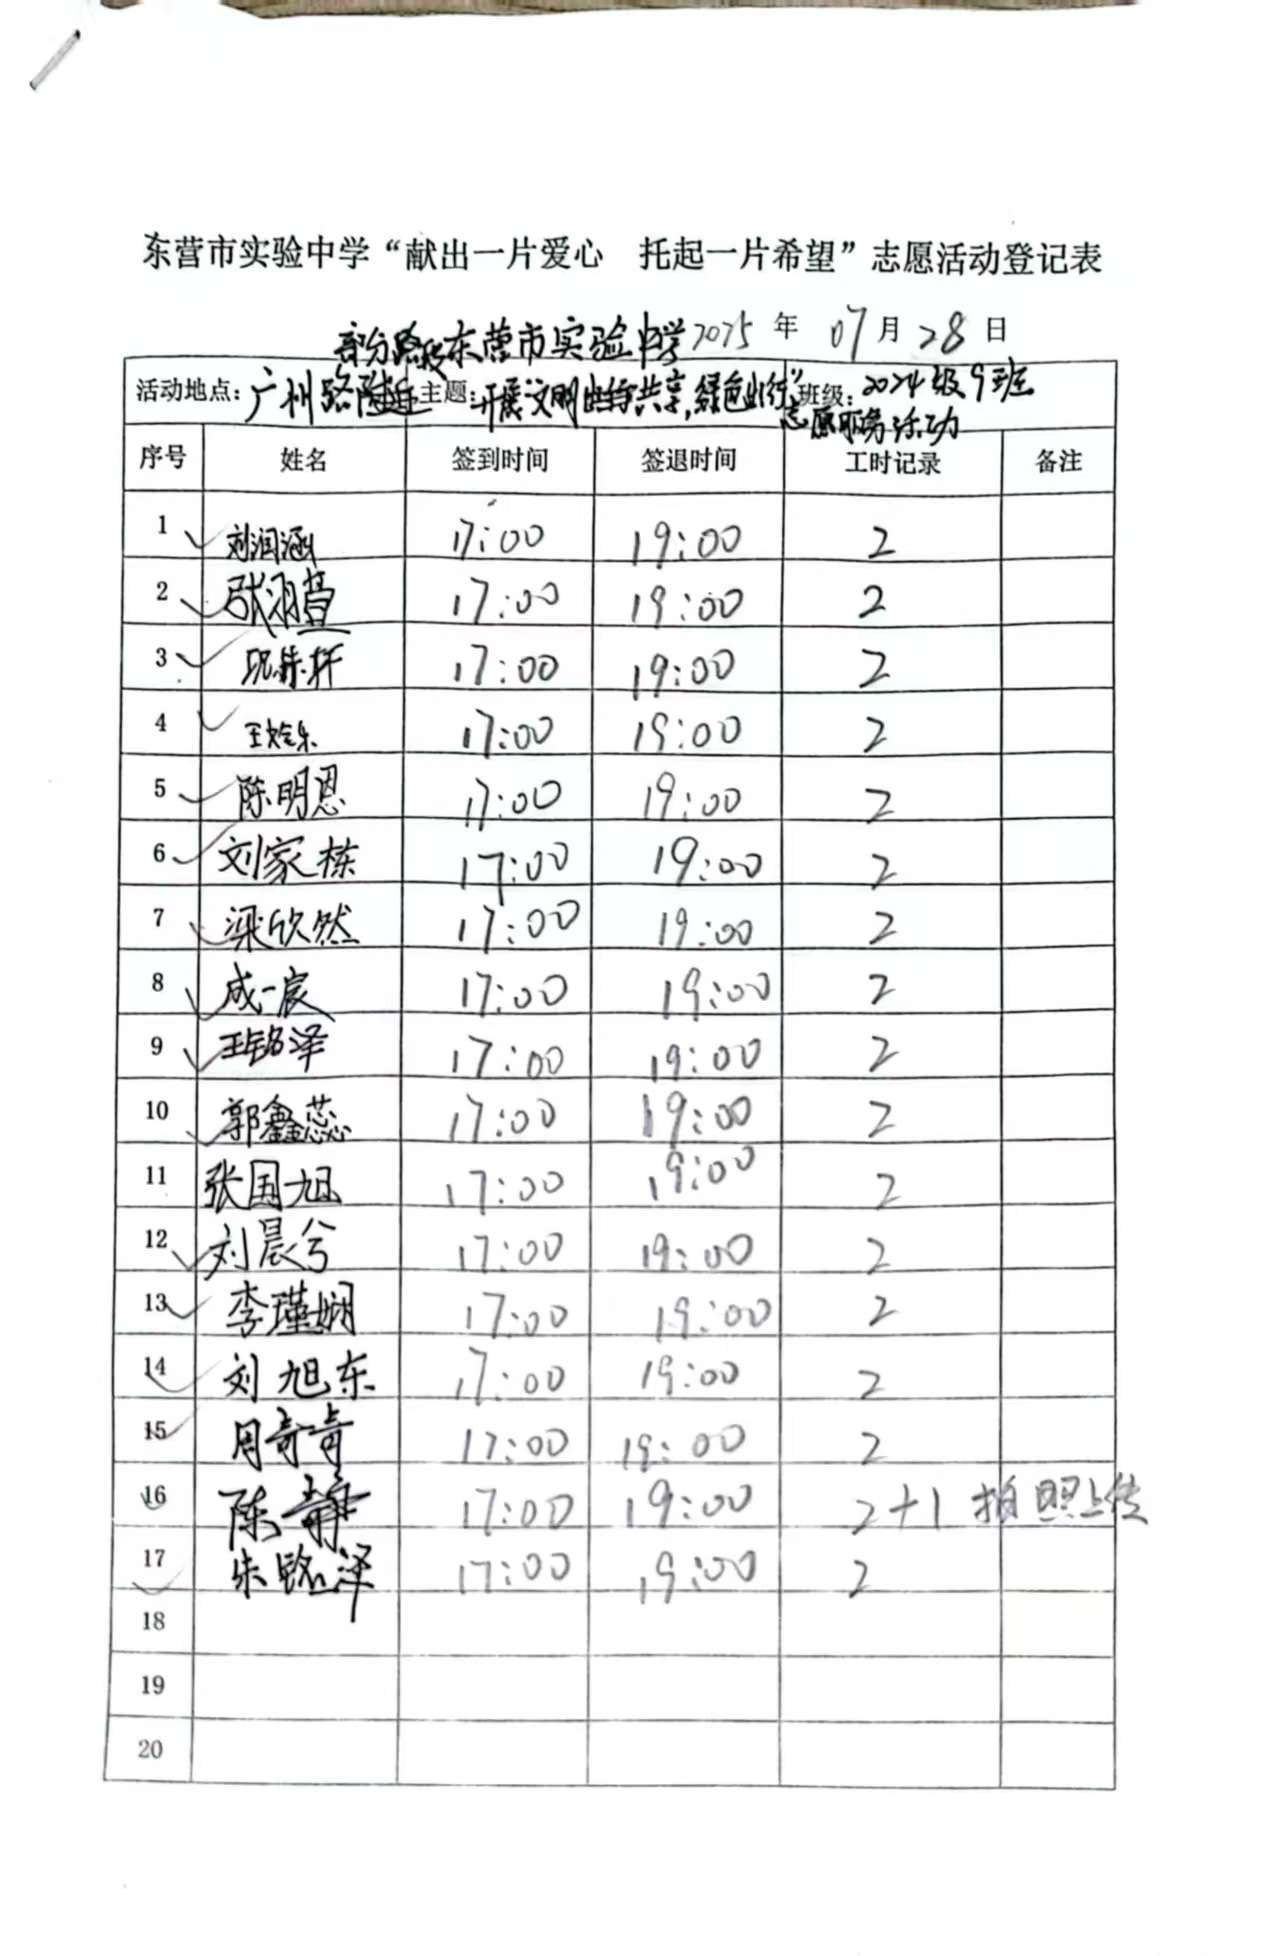 东营市实验中学“献出一片爱心 托起一片希望”志愿活动登记表
部分路段东营市实验中学2025年 07月28日
活动地点:广州路附近 主题:开展文明出行共享,绿色出行” 班级:2024级9班
志愿服务活动
序号 姓名 签到时间 签退时间 工时记录 备注
1 刘润涵 17:00 19:00 2
2 张羽萱 17:00 19:00 2
3 17:00 19:00 2
4 王 乐 17:00 19:00 2
5 陈明恩 17:00 19:00 2
6 刘家栋 17:00 19:00 2
7 梁欣然 17:00 19:00 2
8 成一宸 17:00 19:00 2
9 王铭泽 17:00 19:00 2
10 郭鑫蕊 17:00 19:00 2
11 张国旭 17:00 19:00 2
12 刘晨兮 17:00 19:00 2
13 李瑾娴 17:00 19:00 2
14 刘旭东 17:00 19:00 2
15 周奇奇 17:00 19:00 2
16 陈静 17:00 19:00 2+1 拍照上传
17 朱铭泽 17:00 19:00 2
18
19
20